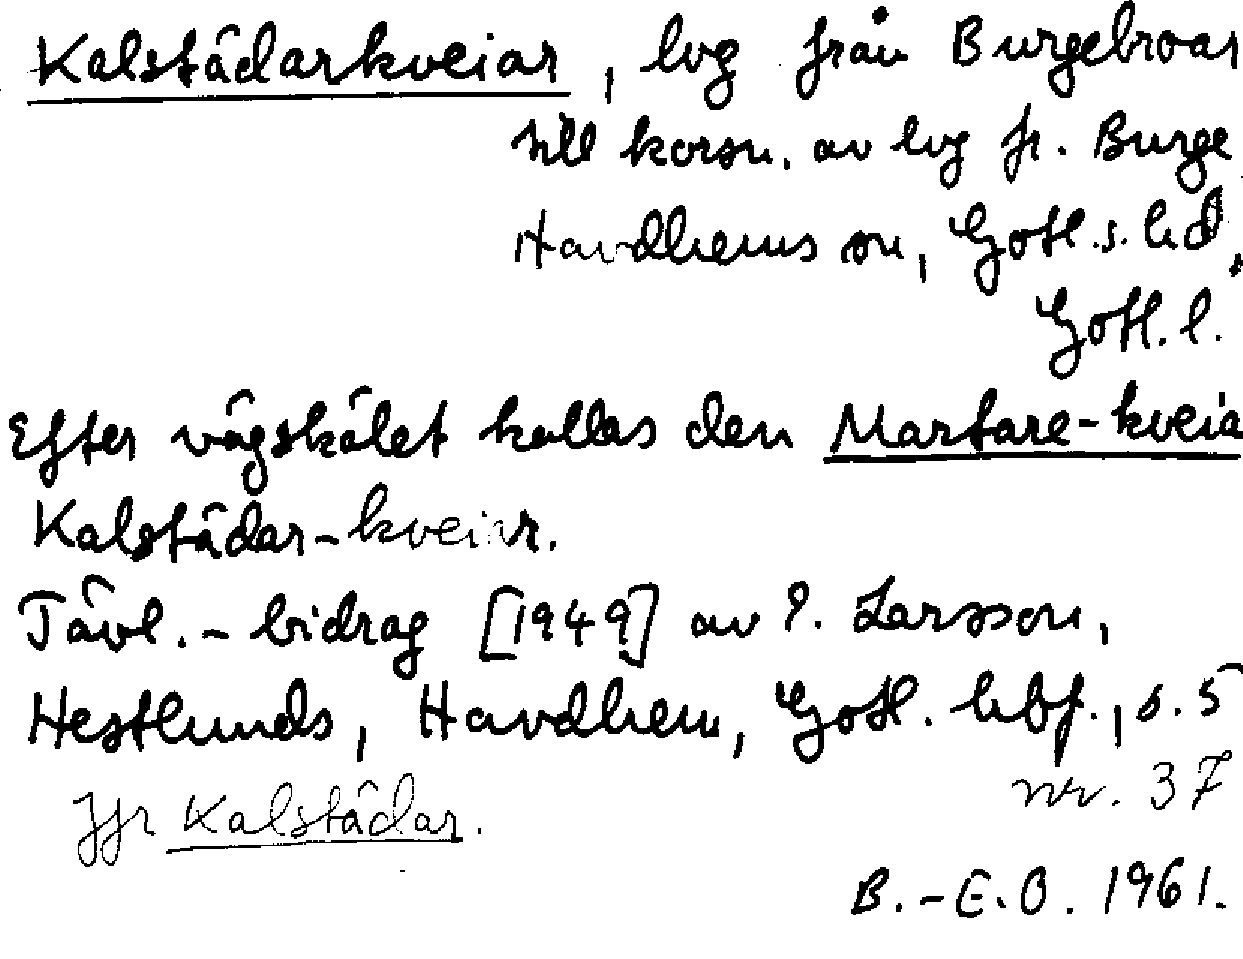 Kalstädarkveiar, lvg från Burgebroar
till korsn. av lvg fr. Burge
Havdhems sn, Gotl. s. hd,
Gotl. l.
Efter vägskälet kallas den Martare-kveia
Kalstädar-kveiar.
Tävl.-bidrag [1949] av P. Larsson,
Hestlunds, Havdhem, Gotl. hbf., s. 5
nr. 37
Jfr Kalstädar.
B.-E.O. 1961.